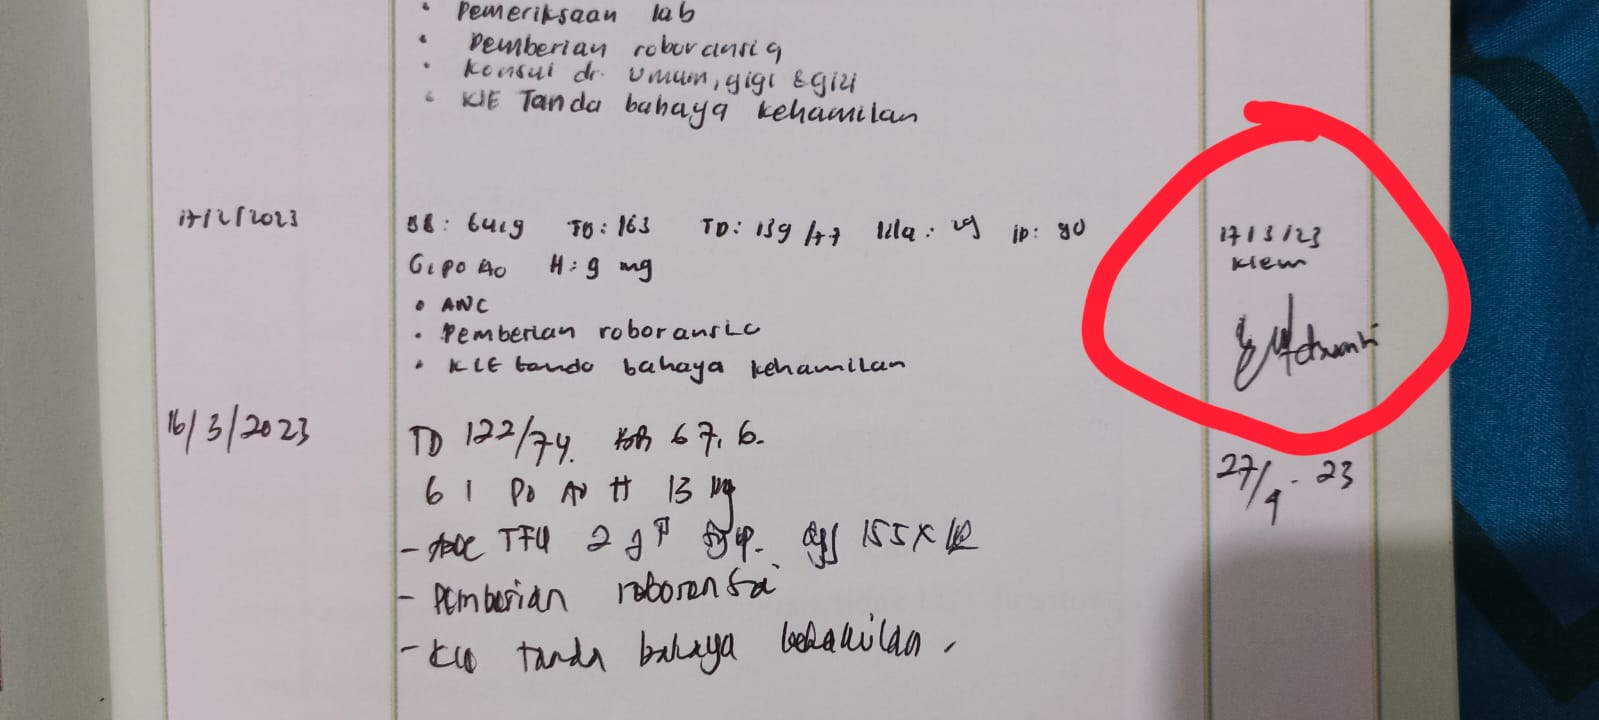 • Pemeriksaan lab
• Pemberian roboransia
• Konsul dr. Umum, gigi & gizi
• KIE Tanda bahaya kehamilan
17/2/2023
BB: 64 kg TB: 163 TD: 139/77 Lila: 29 LP: 90
G1P0A0 H: 9 mg
• ANC
• Pemberian roboransia
• KIE tanda bahaya kehamilan
17/3/23
Klem
16/3/2023
TD 122/74. BB 67,6.
G1 P0 A0 H 13 mg
- ANC TFU 2 155x
- Pemberian roboransia
- KIE tanda bahaya kehamilan.
27/4-23